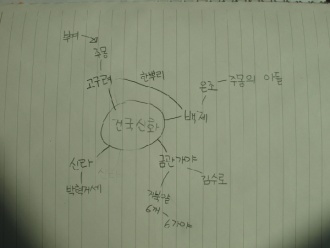 부여
주몽
고구려
한뿌리
온조
주몽의 아들
백제
건국신화
신라
박혁거세
금관가야
김수로
거북알
6개
6가야